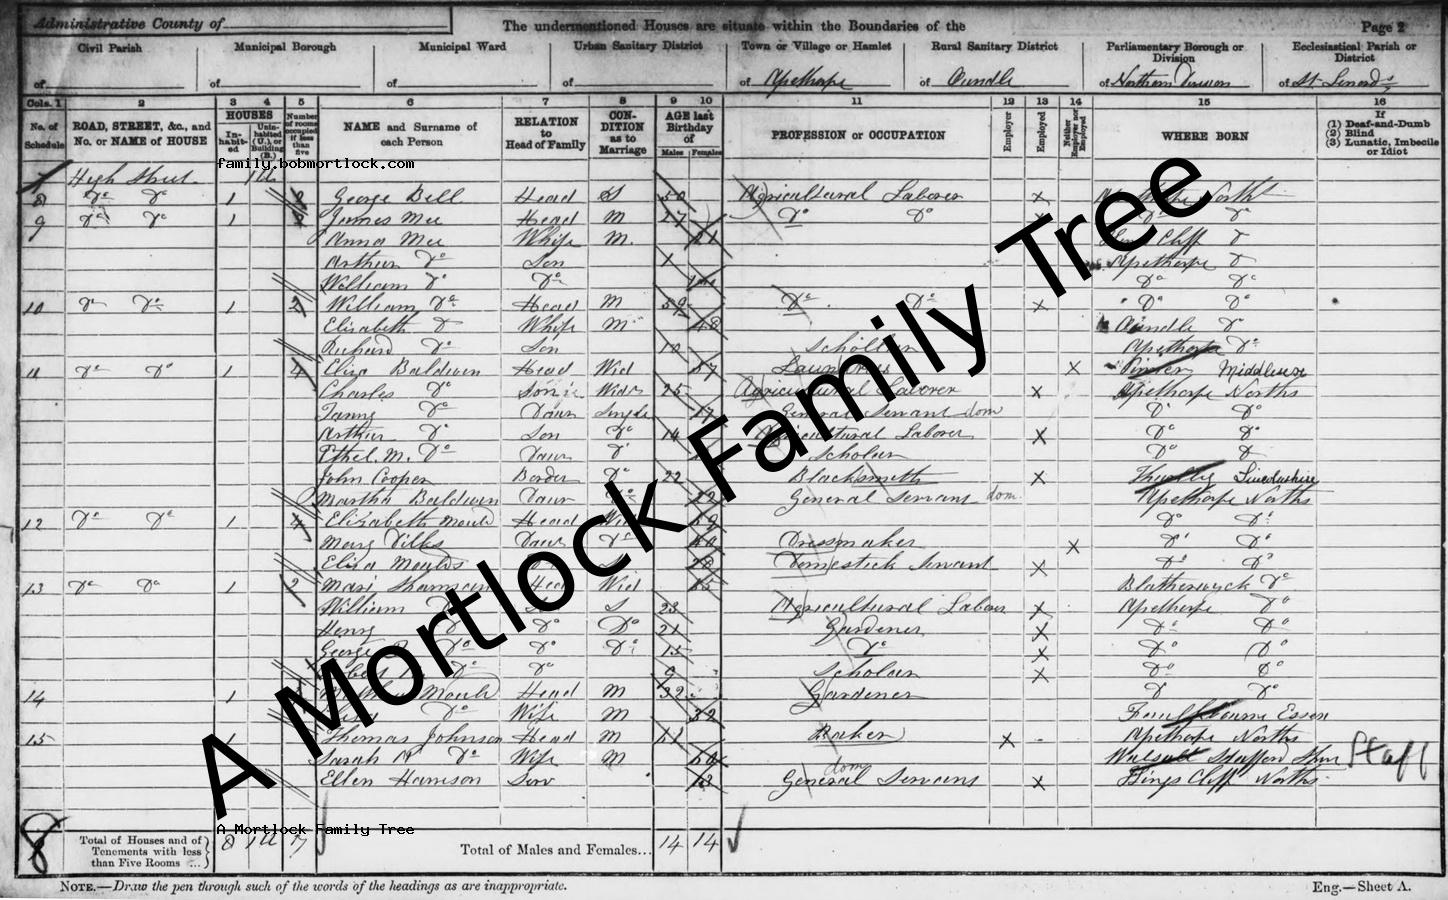 Administrative County of
The undermentioned Houses are situate within the Boundaries of the
Page 2
Civil Parish
Municipal Borough
Municipal Ward
Urban Sanitary District
Town or Village or Hamlet
Rural Sanitary District
Parliamentary Borough or Division
Ecclesiastical Parish or District
of
of
of
of
of Apethorpe
of Oundle
of Northern Division
of St. Lenards
Cols. 1 2 3 4 5 6 7 8 9 10 11 12 13 14 15 16
No. of Schedule
ROAD, STREET, &c., and No. or NAME of HOUSE
HOUSES
In-habit-ed
Unin-habited (U.), or Building (B.)
Number of rooms occupied if less than five
NAME and Surname of each Person
RELATION to Head of Family
CON-DITION as to Marriage
AGE last Birthday of
Males Females
PROFESSION or OCCUPATION
Employer
Employed
Neither Employer nor Employed
WHERE BORN
If
(1) Deaf-and-Dumb
(2) Blind
(3) Lunatic, Imbecile or Idiot
family.bobmortlock.com
7 High Street 1 U
8 Do Do 1 George Bell Head S 50 Agricultural Laborer X North
9 Do Do 1 James Mee Head M 27 Do Do X Do Do
Anna Mee Whife M. 21 Cliff Do
Arthur Do Son 1 Apethorpe Do
William Do Do Do Do
10 Do Do 1 2 William Do Head M 59 Do Do X Do Do
Elizabeth Do Whife M 48 Oundle Do
Richard Do Son 10 Scholar Apethorpe Do
11 Do Do 1 4 Eliza Baldwin Head Wid 57 X Pinner Middlesex
Charles Do Son Widr 25 Agricultural Laborer X Apethorpe Norths
Fanny Do Daur Single 17 General Servant dom Do Do
Arthur Do Son Do 14 Agricultural Laborer X Do Do
Ethel. M. Do Daur Do Scholar Do Do
John Cooper Border Do 22 Blacksmith X Lincolnshire
Martha Baldwin Daur Do 22 General Servant dom. Apethorpe Norths
12 Do Do 1 4 Elizabeth Mould Head 59 Do Do
Mary Dilks Daur Do 40 Dressmaker X Do Do
Eliza Moulds 28 Domestick Servant X Do Do
13 Do Do 1 2 Mari Sharman Head Wid 55 Blatherwyck Do
William Do S 23 Agricultural Laborer X Apethorpe Do
Henry Do Do 21 Gardener X Do Do
George Do Do Do 15 Do X Do Do
Do Do 9 Scholar X Do Do
14 1 Mould Head M 32 Gardener Do Do
Do Wife M 32 Essex
15 1 Thomas Johnson Head M 51 Baker X - Apethorpe Norths
Sarah Do Wife M 50 Walsall Stafford Shire Staff
Ellen Harrison Serv 13 General Servant dom X Kings Cliff Norths
A Mortlock Family Tree
A Mortlock Family Tree
8
Total of Houses and of Tenements with less than Five Rooms ... 8 1 U 7
Total of Males and Females... 14 14
NOTE.—Draw the pen through such of the words of the headings as are inappropriate.
Eng.—Sheet A.